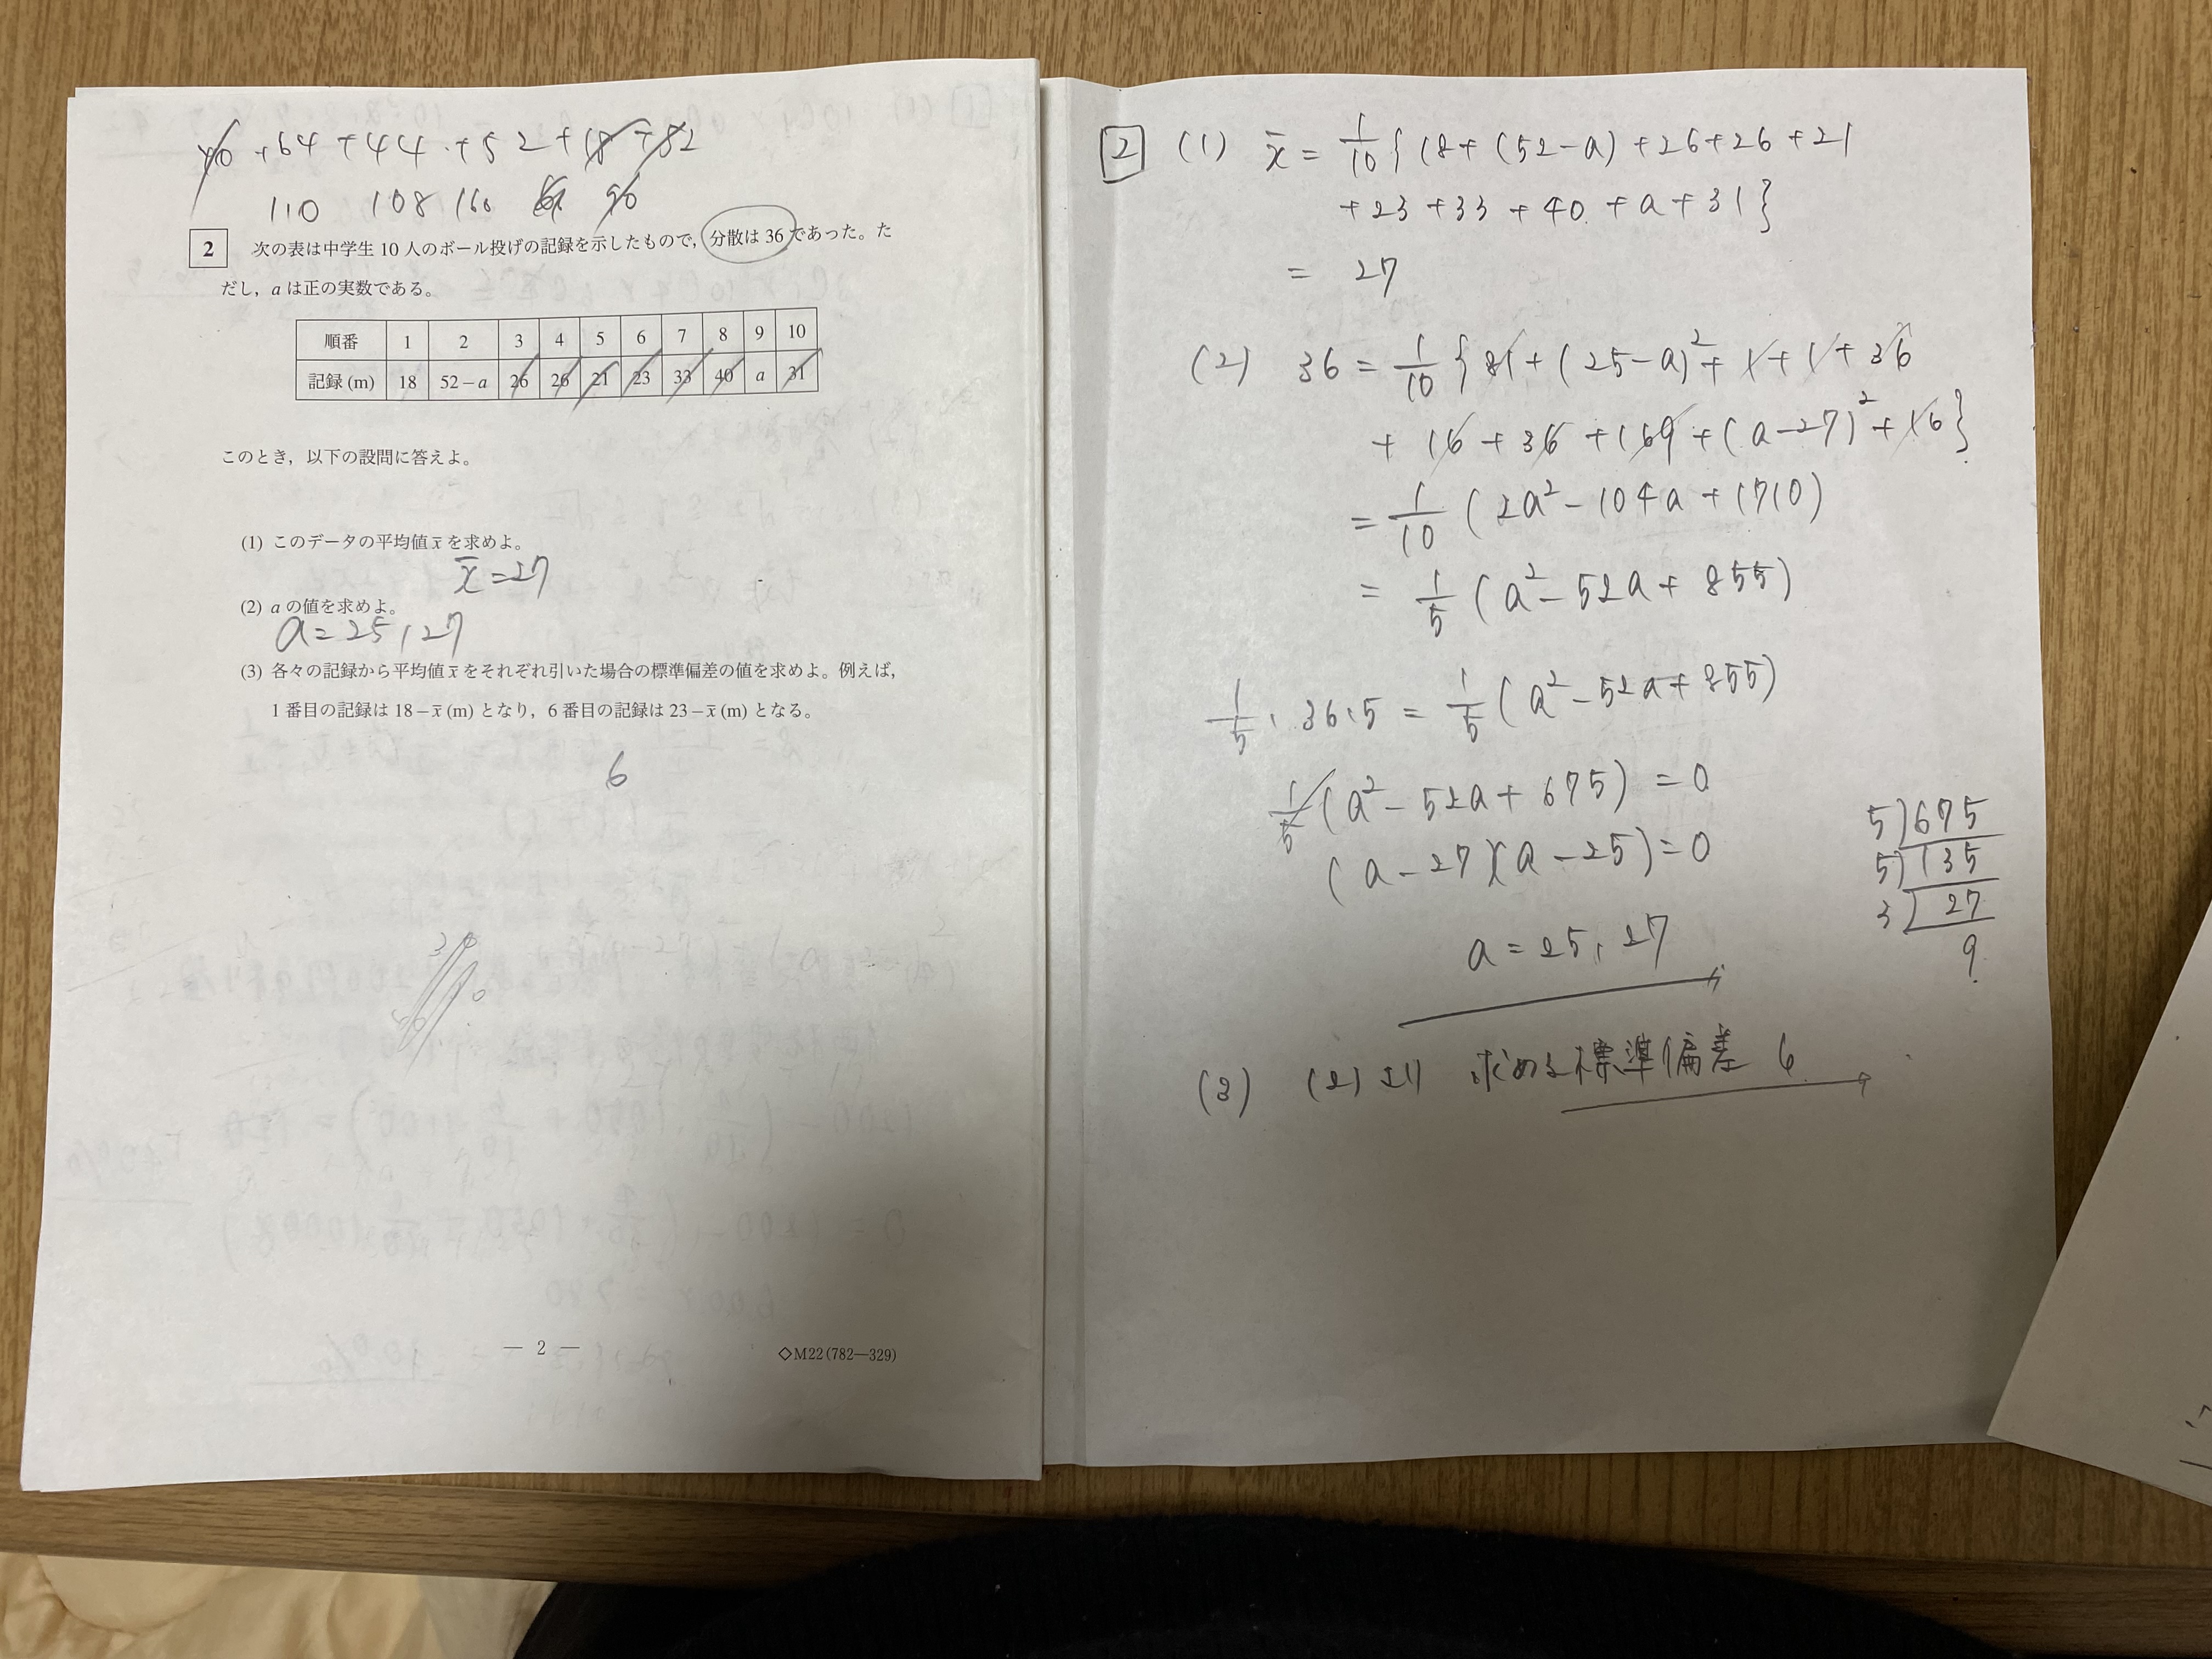 +64+44+52+18+52
110 108 160 96
2 次の表は中学生 10 人のボール投げの記録を示したもので，分散は 36 であった。た
だし，a は正の実数である。
順番 1 2 3 4 5 6 7 8 9 10
記録 (m) 18 52−a 26 26 21 23 33 40 a 31
このとき，以下の設問に答えよ。
(1) このデータの平均値 x̄ を求めよ。
x̄=27
(2) a の値を求めよ。
a=25,27
(3) 各々の記録から平均値 x̄ をそれぞれ引いた場合の標準偏差の値を求めよ。例えば，
1 番目の記録は 18−x̄ (m) となり，6 番目の記録は 23−x̄ (m) となる。
6
— 2 —
◇M22(782—329)
2 (1) x̄ = 1/10 {18+(52-a)+26+26+21
+23+33+40+a+31}
= 27
(2) 36 = 1/10 {81+(25-a)²+1+1+36
+16+36+169+(a-27)²+16}
= 1/10 (2a²-104a+1710)
= 1/5 (a²-52a+855)
1/5・36・5 = 1/5 (a²-52a+855)
1/5 (a²-52a+675) = 0
(a-27)(a-25)=0
a=25,27
5)675
5)135
3)27
9
(3) (2)より 求める標準偏差 6